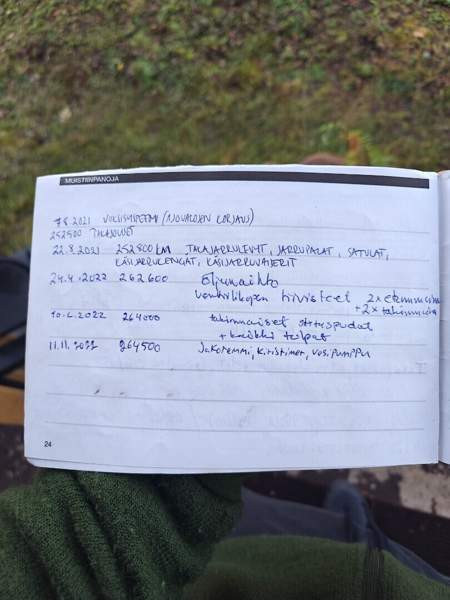 MUISTIINPANOJA
7.8.2021 VOLVISMIPEEM (AJOVALOJEN KORJAUS)
252500 TALAJOUSET
22.8.2021 252800 KM TAKAJARRULEVYT, JARRUPALAT, SATULAT,
KÄSIJARRUKENGÄT, KÄSIJARRUVAIJERIT
24.4.2022 262600 öljynvaihto
venttiilikopan tiivisteet 2x etummaiset
+ 2x takimmaiset
10.6.2022 264000 takimmaiset
+ kaikki tulpat
11.11.2022 264500 Jakoremmi, kiristimet, vesipumppu
24